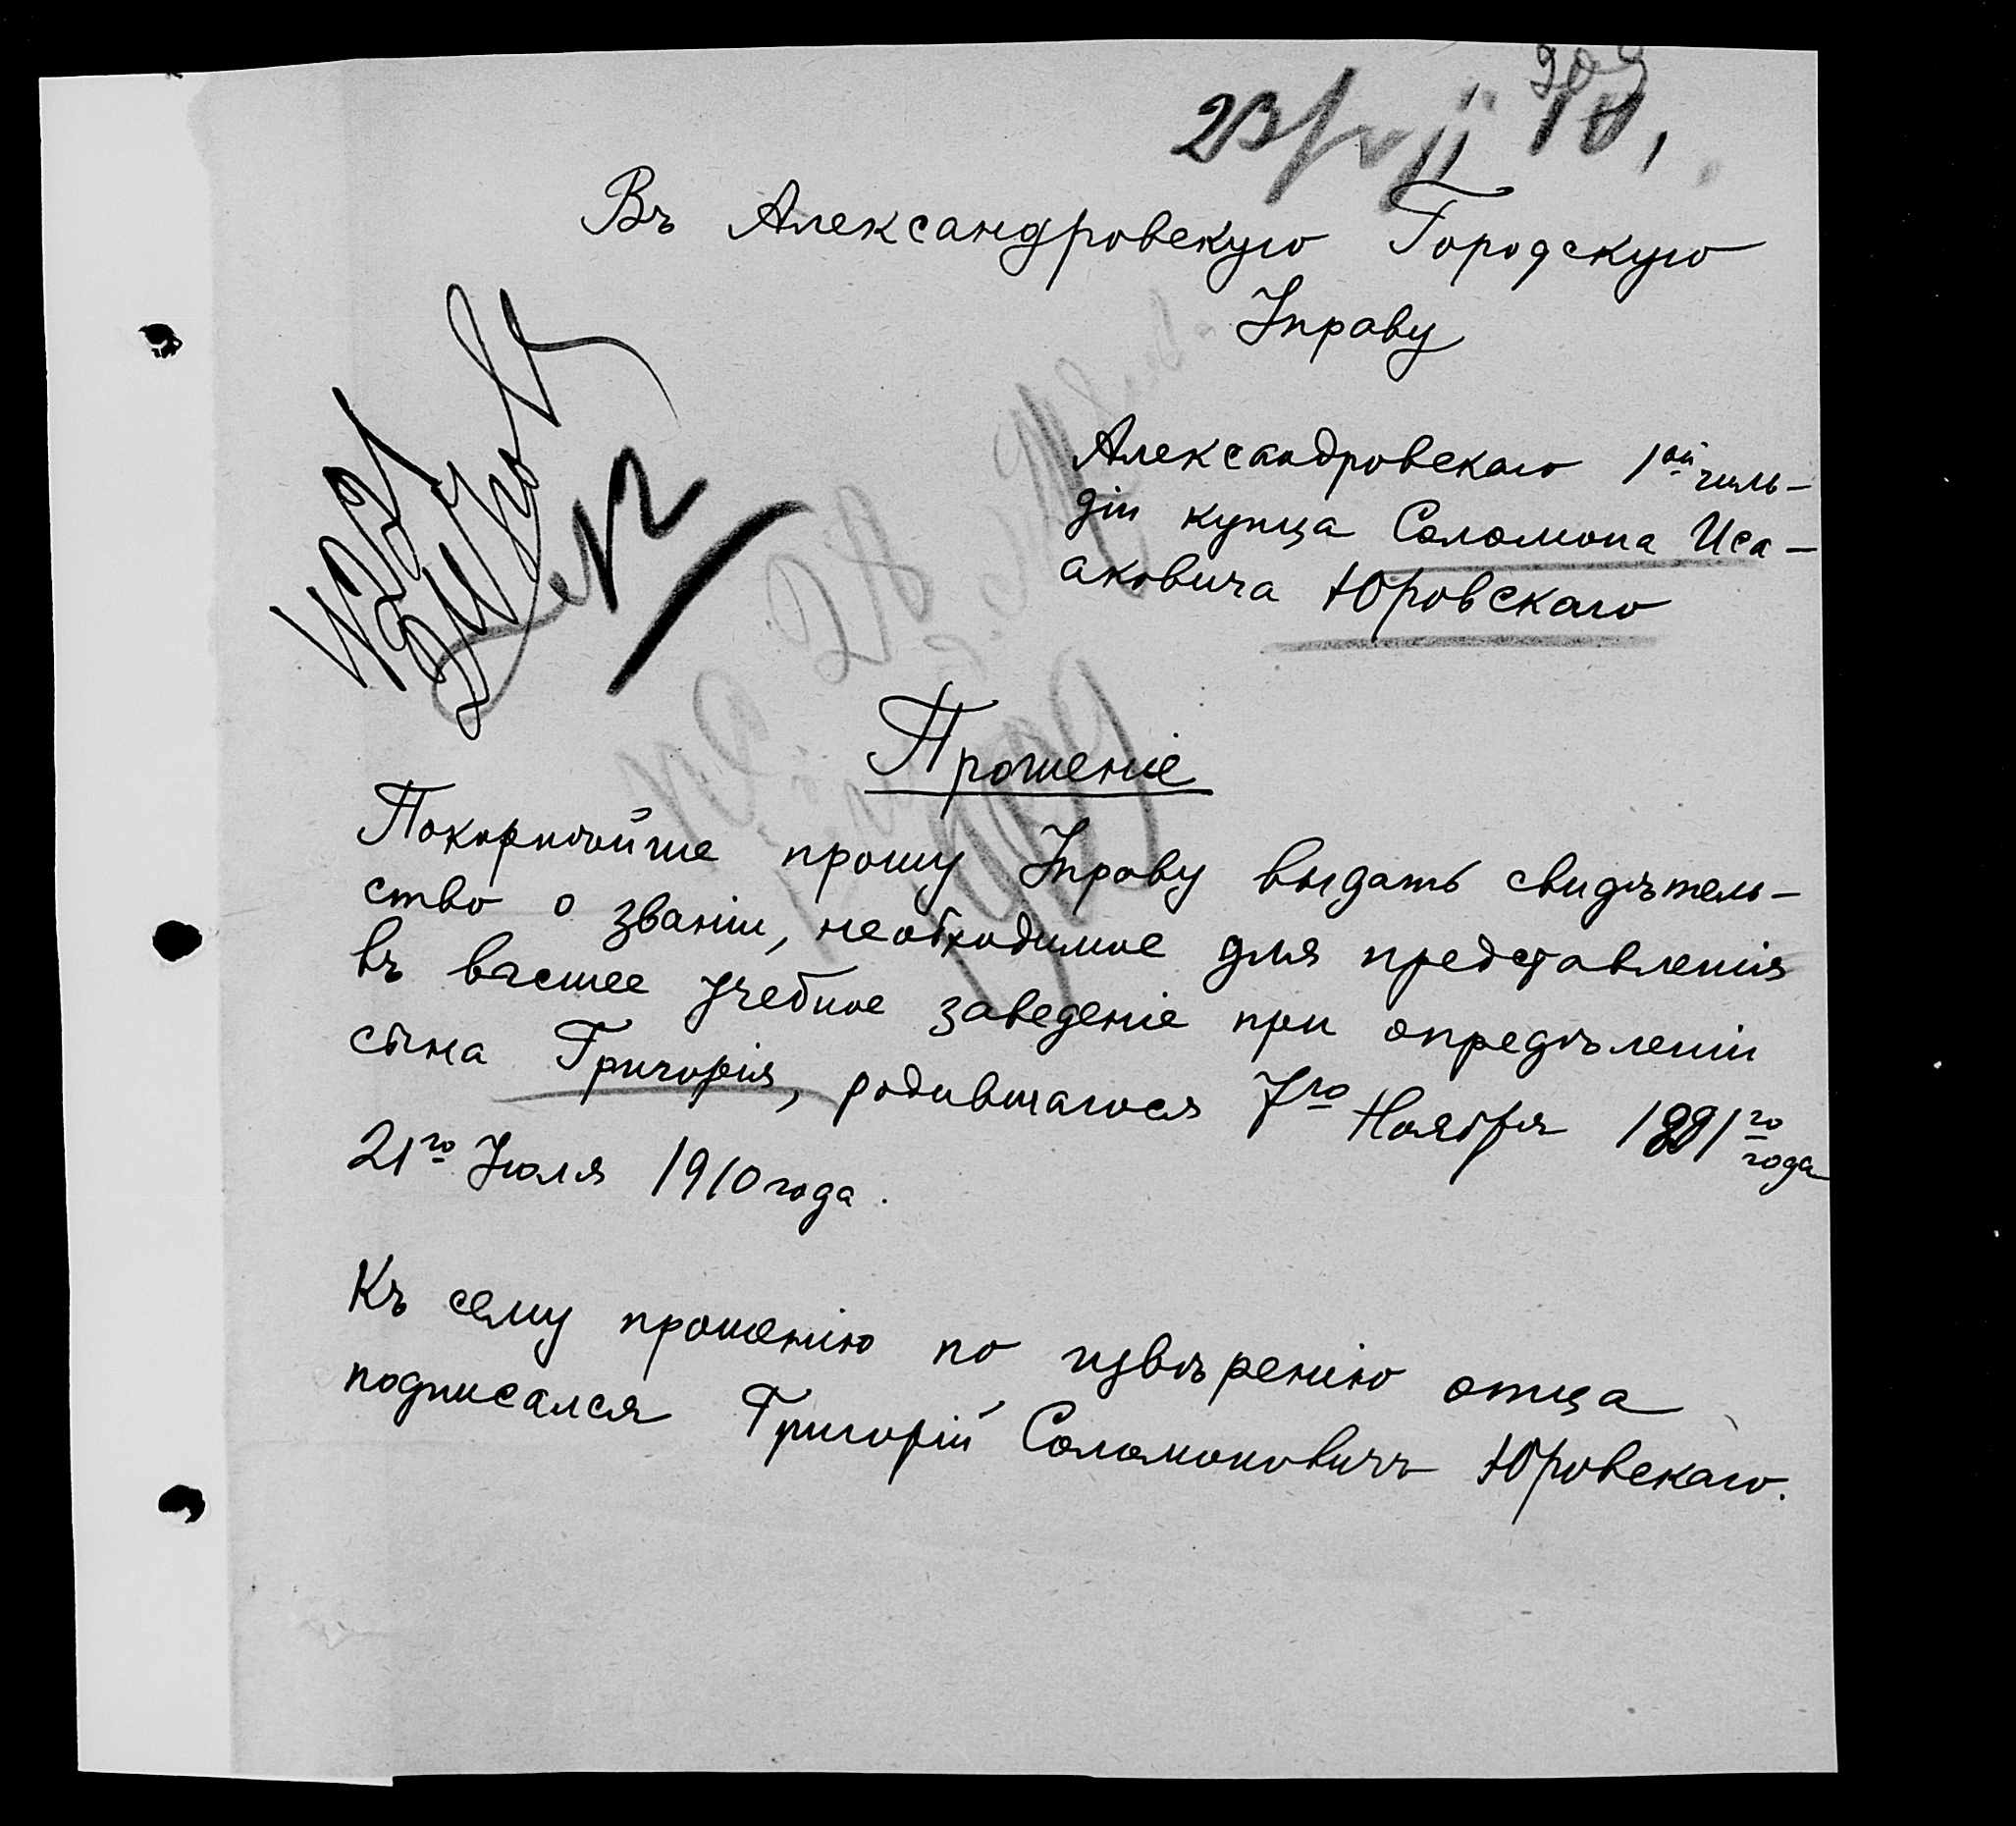 23/VII 10.
Въ Александровскую Городскую
Управу
Александровскаго 1ой гиль-
діи купца Соломона Иса-
аковича Юровскаго
Прошеніе
Покорнѣйше прошу Управу выдать свидѣтель-
ство о званіи, необходимое для представленія
въ высшее учебное заведеніе при опредѣленіи
сына Григорія, родившагося 7го Ноября 1891го года
21го Іюля 1910 года.
Къ сему прошенію по довѣренію отца
подписался Григорій Соломоновичъ Юровскаго.